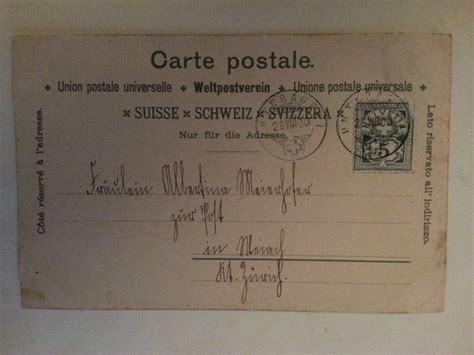 Carte postale.
Union postale universelle Weltpostverein Unione postale universale
SUISSE SCHWEIZ SVIZZERA
Nur für die Adresse.
Côté réservé à l'adresse.
Lato riservato all' indirizzo.
5
Fräulein Albertina Meierhofer
zur Post
in Weiach
Kt. Zürich.